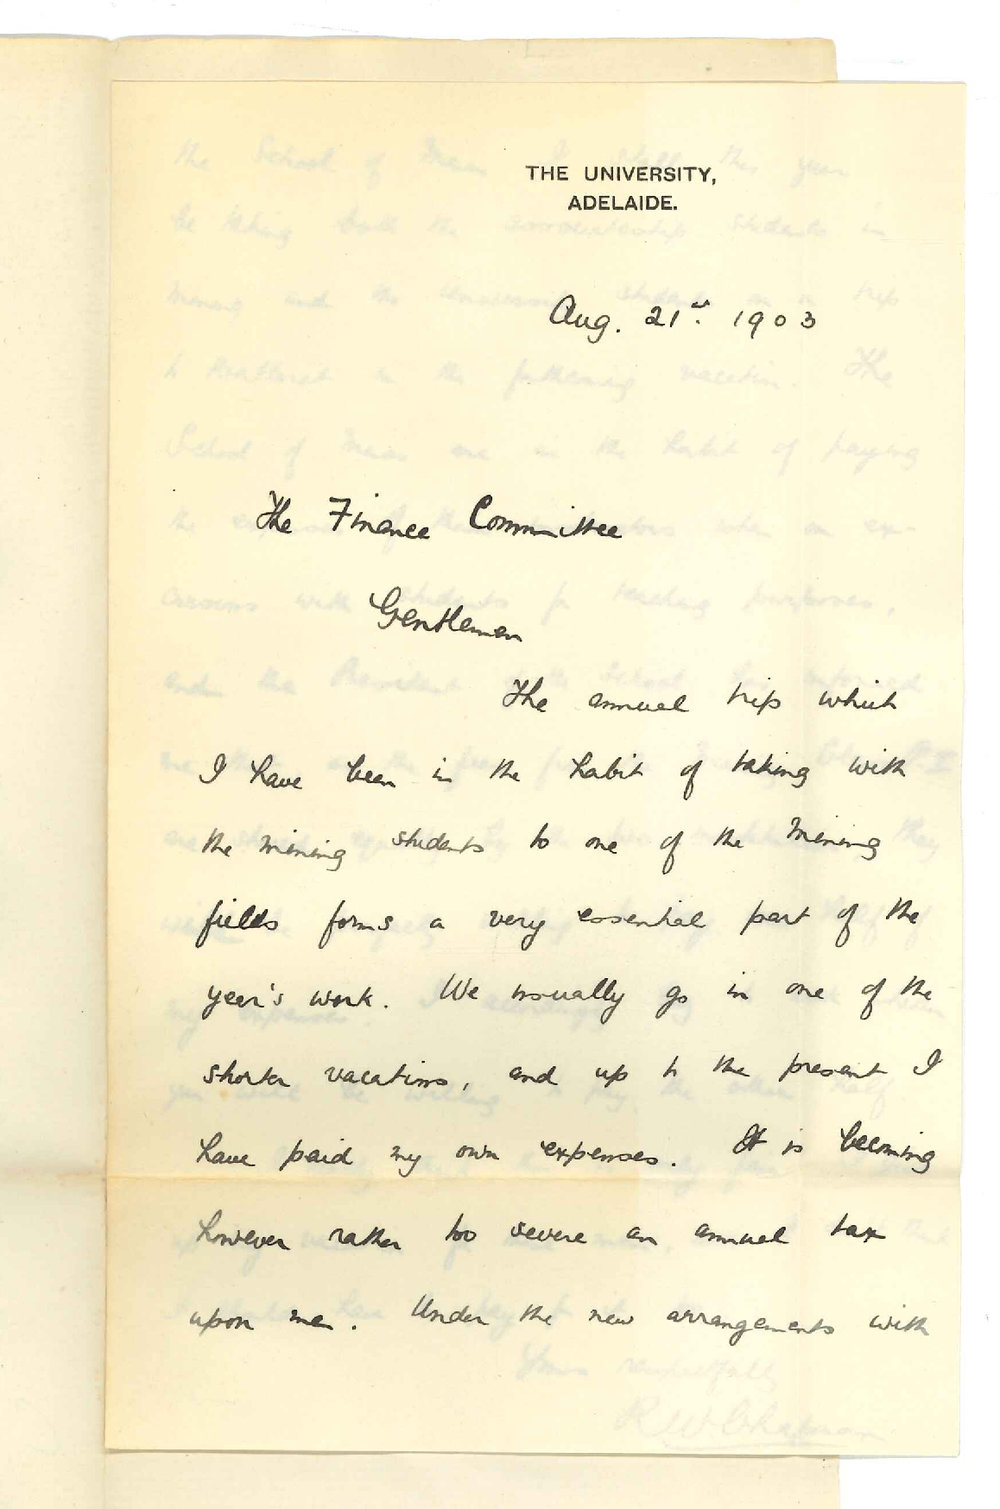 THE UNIVERSITY,
ADELAIDE.
Aug. 21st. 1903
The Finance Committee
Gentlemen
The annual trip which
I have been in the habit of taking with
the mining students to one of the mining
fields forms a very essential part of the
year's work. We usually go in one of the
shorter vacations, and up to the present I
have paid my own expenses. It is becoming
however rather too severe an annual tax
upon me. Under the new arrangements with